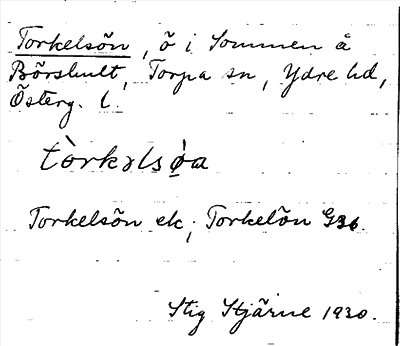 Torkelsön, ö i Sommen å
Börshult, Torpa sn, Ydre hd,
Österg. l.
tòrkəlsø̣̀a
Torkelsön ek; Torkelön G36.
Stig Stjärne 1930.